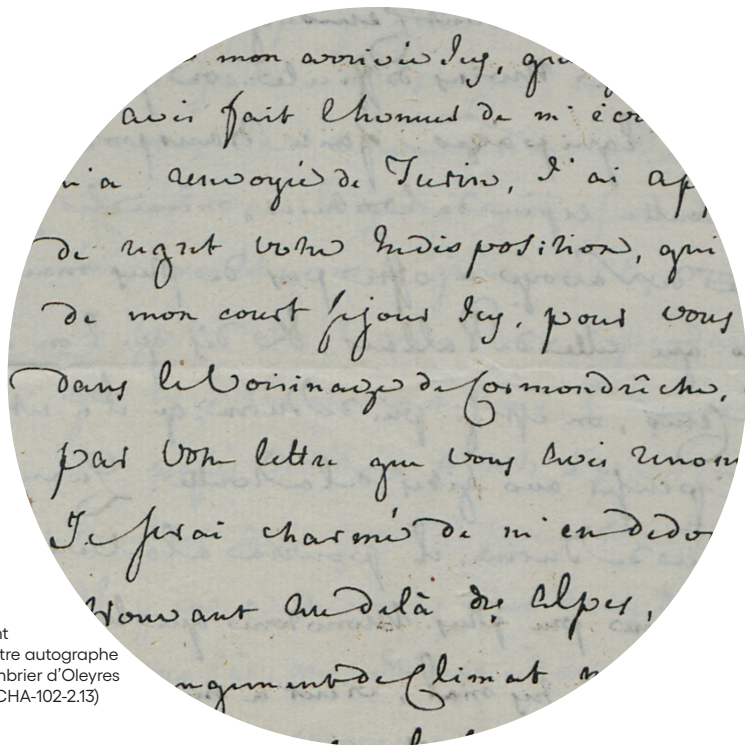 mon arrivée Icy, qu
avis fait lhonneur de m'écr
m'a renvoyée de Turin, J'ai ap
de regret votre Indisposition, qui
de mon court séjour Icy, pour vous
dans le Voisinage de Cormondrêche,
par votre lettre que vous avés renon
Je serai charmé de m'en dedo
vous au delà des Alpes,
ngement de Climat
nt
tre autographe
mbrier d'Oleyres
CHA-102-2.13)